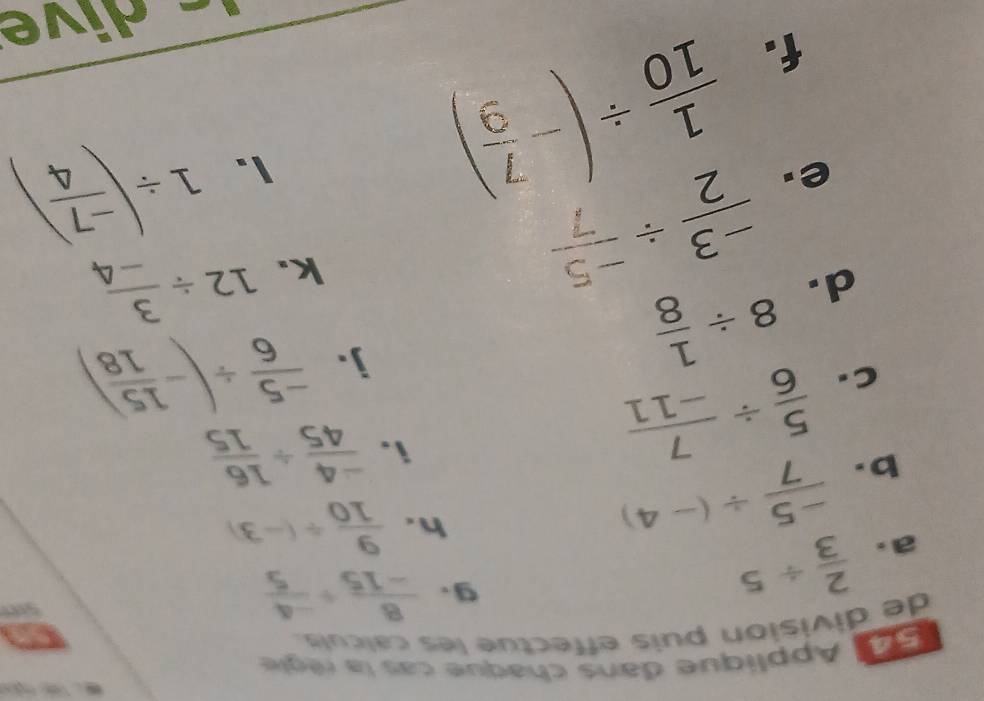 54 Applique dans chaque cas la règle
de division puis effectue les calculs.
a. 2/3 ÷ 5
b. -5/7 ÷ (-4)
c. 5/6 ÷ 7/-11
d. 8 ÷ 1/8
e. -3/2 ÷ -5/7
f. 1/10 ÷ (-7/9)
g. 8/-15 ÷ -4/5
h. 9/10 ÷ (-3)
i. -4/45 ÷ 16/15
j. -5/6 ÷ (-15/18)
k. 12 ÷ 3/-4
l. 1 ÷ (-7/4)